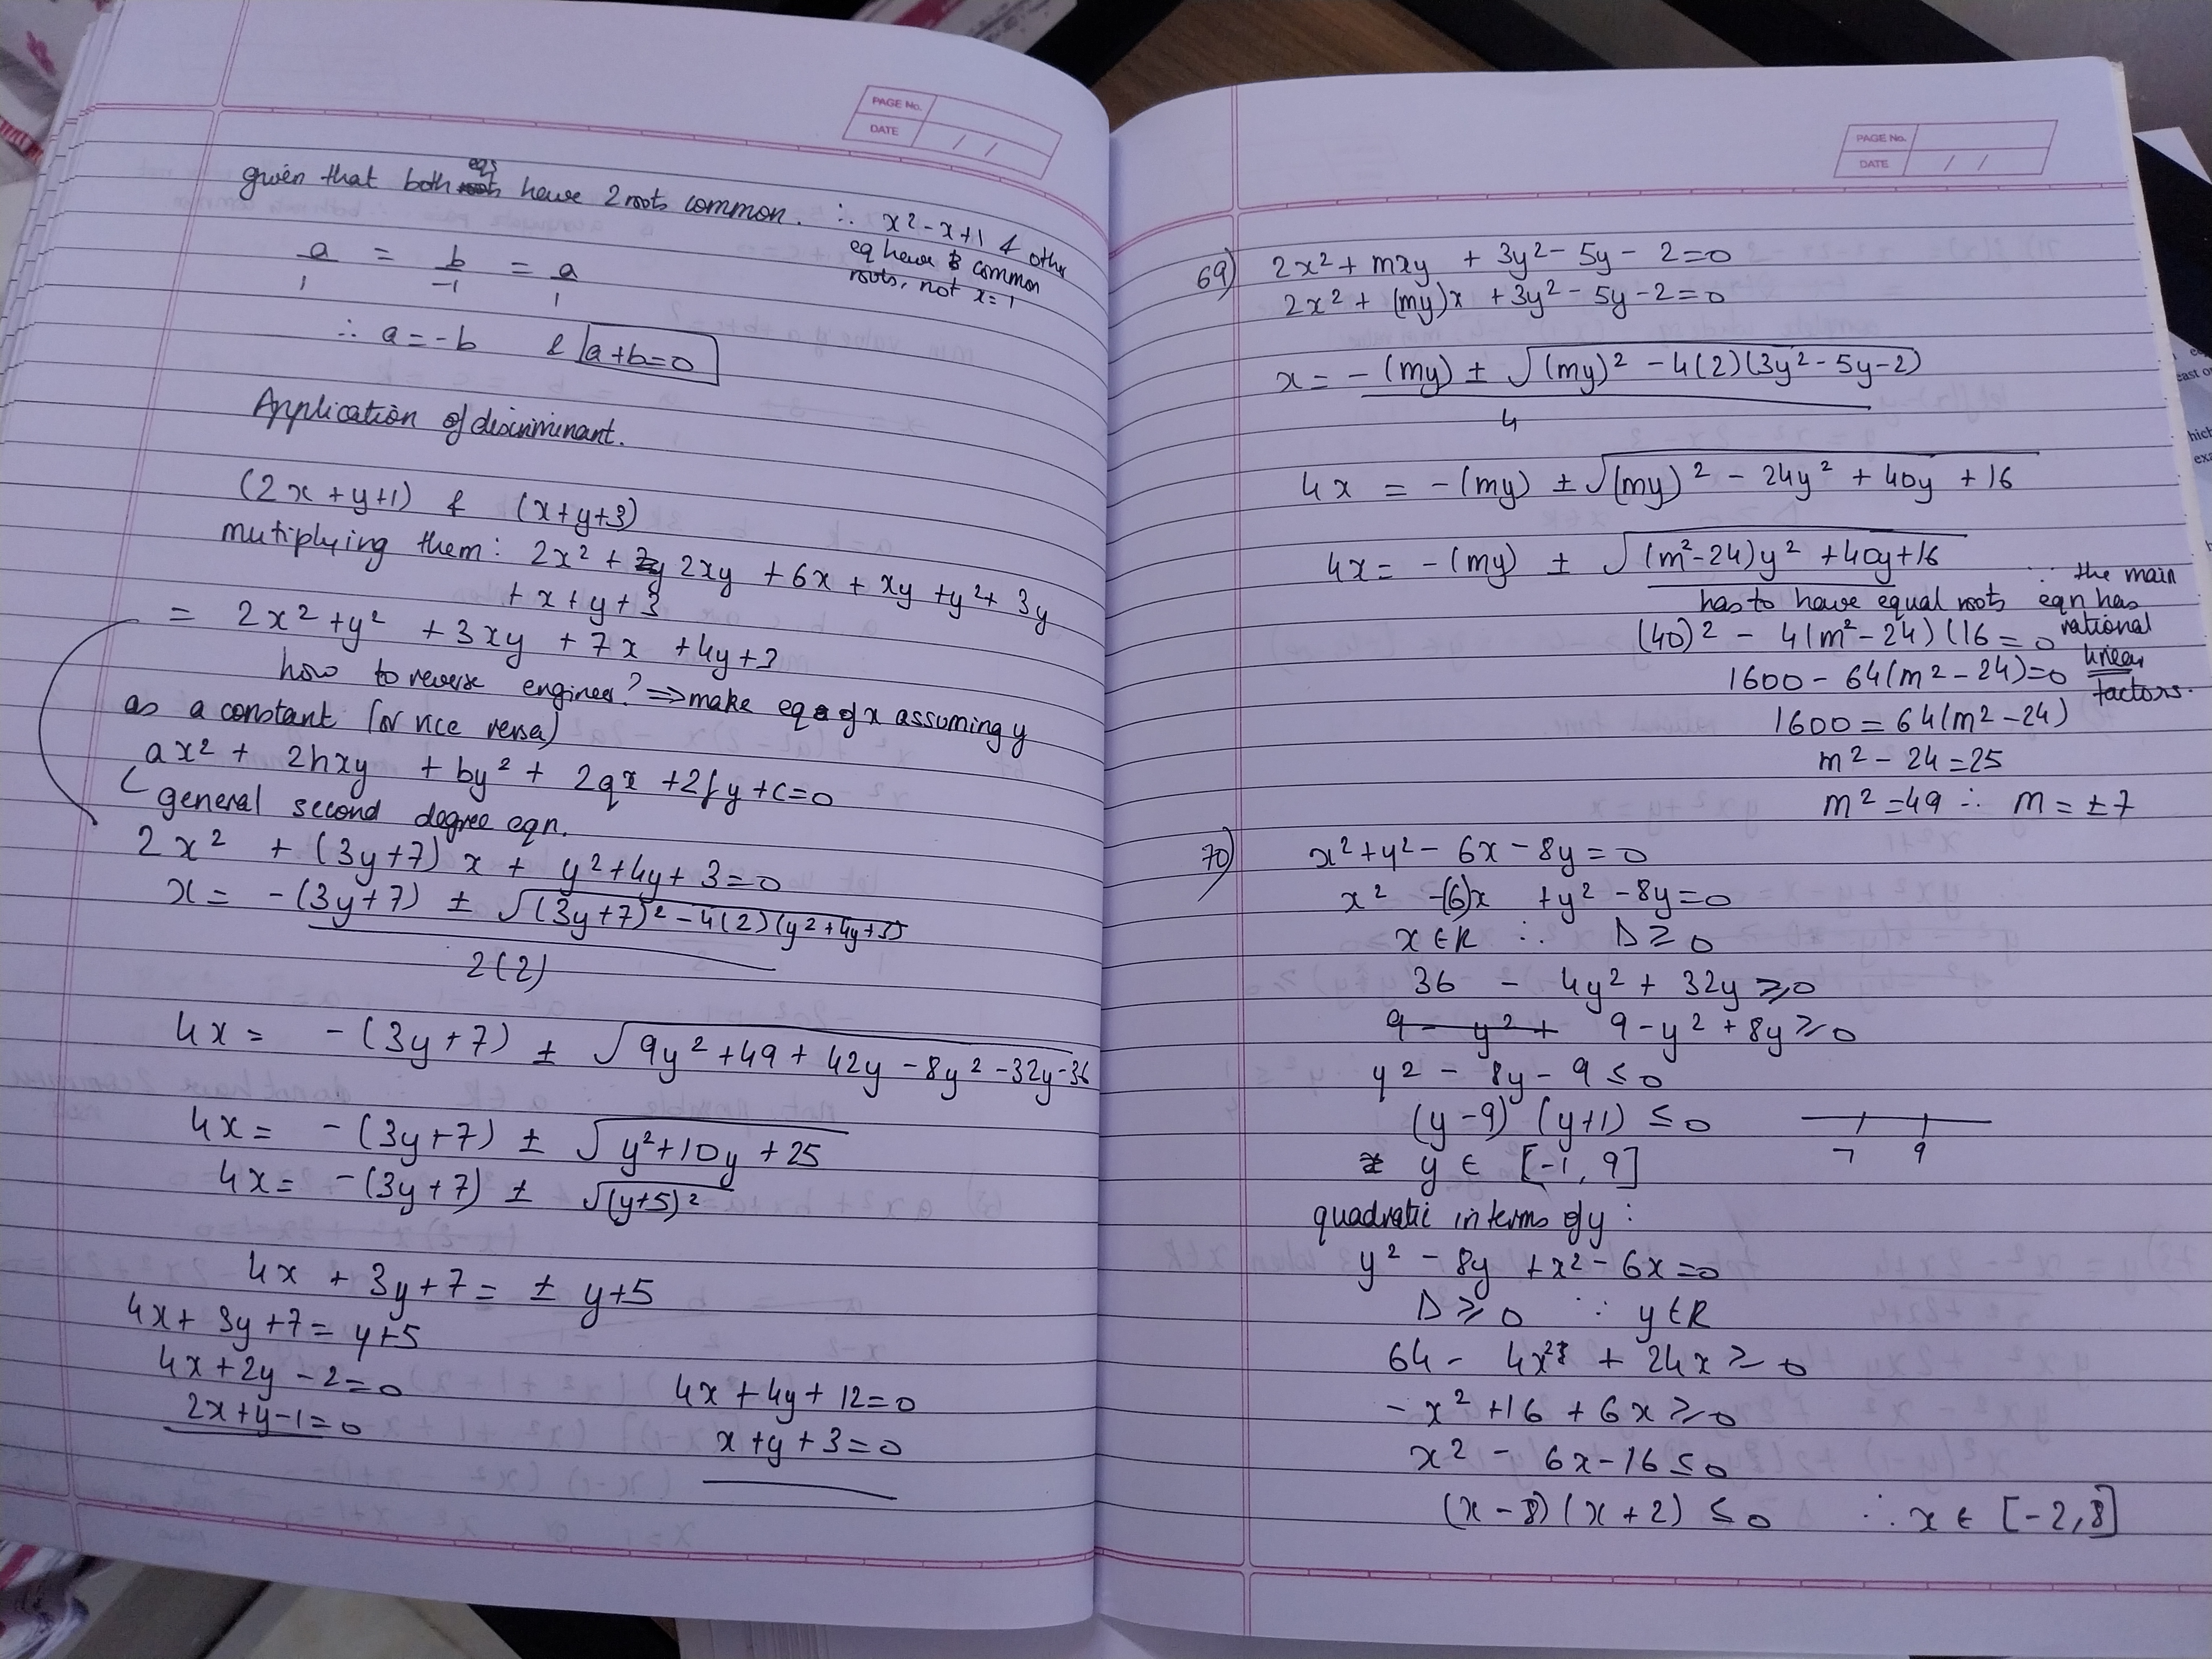 PAGE No.
DATE / /
given that both eqs have 2 roots common. ∴ x² - x + 1 & other
eq have 2 common
roots, not x = 1
a/1 = b/-1 = a/1
∴ a = -b & a+b=0
Application of discriminant.
(2x + y+1) & (x+y+3)
mutiplying them: 2x² + 2xy + 6x + xy + y² + 3y
+ x + y + 3
= 2x² + y² + 3xy + 7x + 4y + 3
how to reverse engineer? ⇒ make eq of x assuming y
as a constant (or vice versa)
ax² + 2hxy + by² + 2gx + 2fy + c = 0
general second degree eqn.
2x² + (3y+7)x + y² + 4y + 3 = 0
x = -(3y+7) ± √(3y+7)² - 4(2)(y² + 4y + 3)
2(2)
4x = -(3y+7) ± √9y² + 49 + 42y - 8y² - 32y - 36
4x = -(3y+7) ± √y² + 10y + 25
4x = -(3y+7) ± √(y+5)²
4x + 3y + 7 = ± y+5
4x + 3y + 7 = y+5
4x + 2y - 2 = 0 4x + 4y + 12 = 0
2x + y - 1 = 0 x + y + 3 = 0
PAGE No.
DATE / /
69) 2x² + mxy + 3y² - 5y - 2 = 0
2x² + (my)x + 3y² - 5y - 2 = 0
x = -(my) ± √(my)² - 4(2)(3y² - 5y - 2)
4
4x = -(my) ± √(my)² - 24y² + 40y + 16
4x = -(my) ± √(m² - 24)y² + 40y + 16
has to have equal roots ∵ the main
eqn has
rational
linear
factors.
(40)² - 4(m² - 24)(16 = 0
1600 - 64(m² - 24) = 0
1600 = 64(m² - 24)
m² - 24 = 25
m² = 49 ∴ m = ±7
70) x² + y² - 6x - 8y = 0
x² -(6)x + y² - 8y = 0
x ∈ R ∴ Δ ≥ 0
36 - 4y² + 32y ≥ 0
9 - y² + 9 - y² + 8y ≥ 0
y² - 8y - 9 ≤ 0
(y - 9) (y+1) ≤ 0
-1 9
y ∈ [-1, 9]
quadratic in terms of y:
y² - 8y + x² - 6x = 0
Δ ≥ 0 ∵ y ∈ R
64 - 4x² + 24x ≥ 0
- x² + 16 + 6x ≥ 0
x² - 6x - 16 ≤ 0
(x - 8) (x + 2) ≤ 0 ∴ x ∈ [-2, 8]